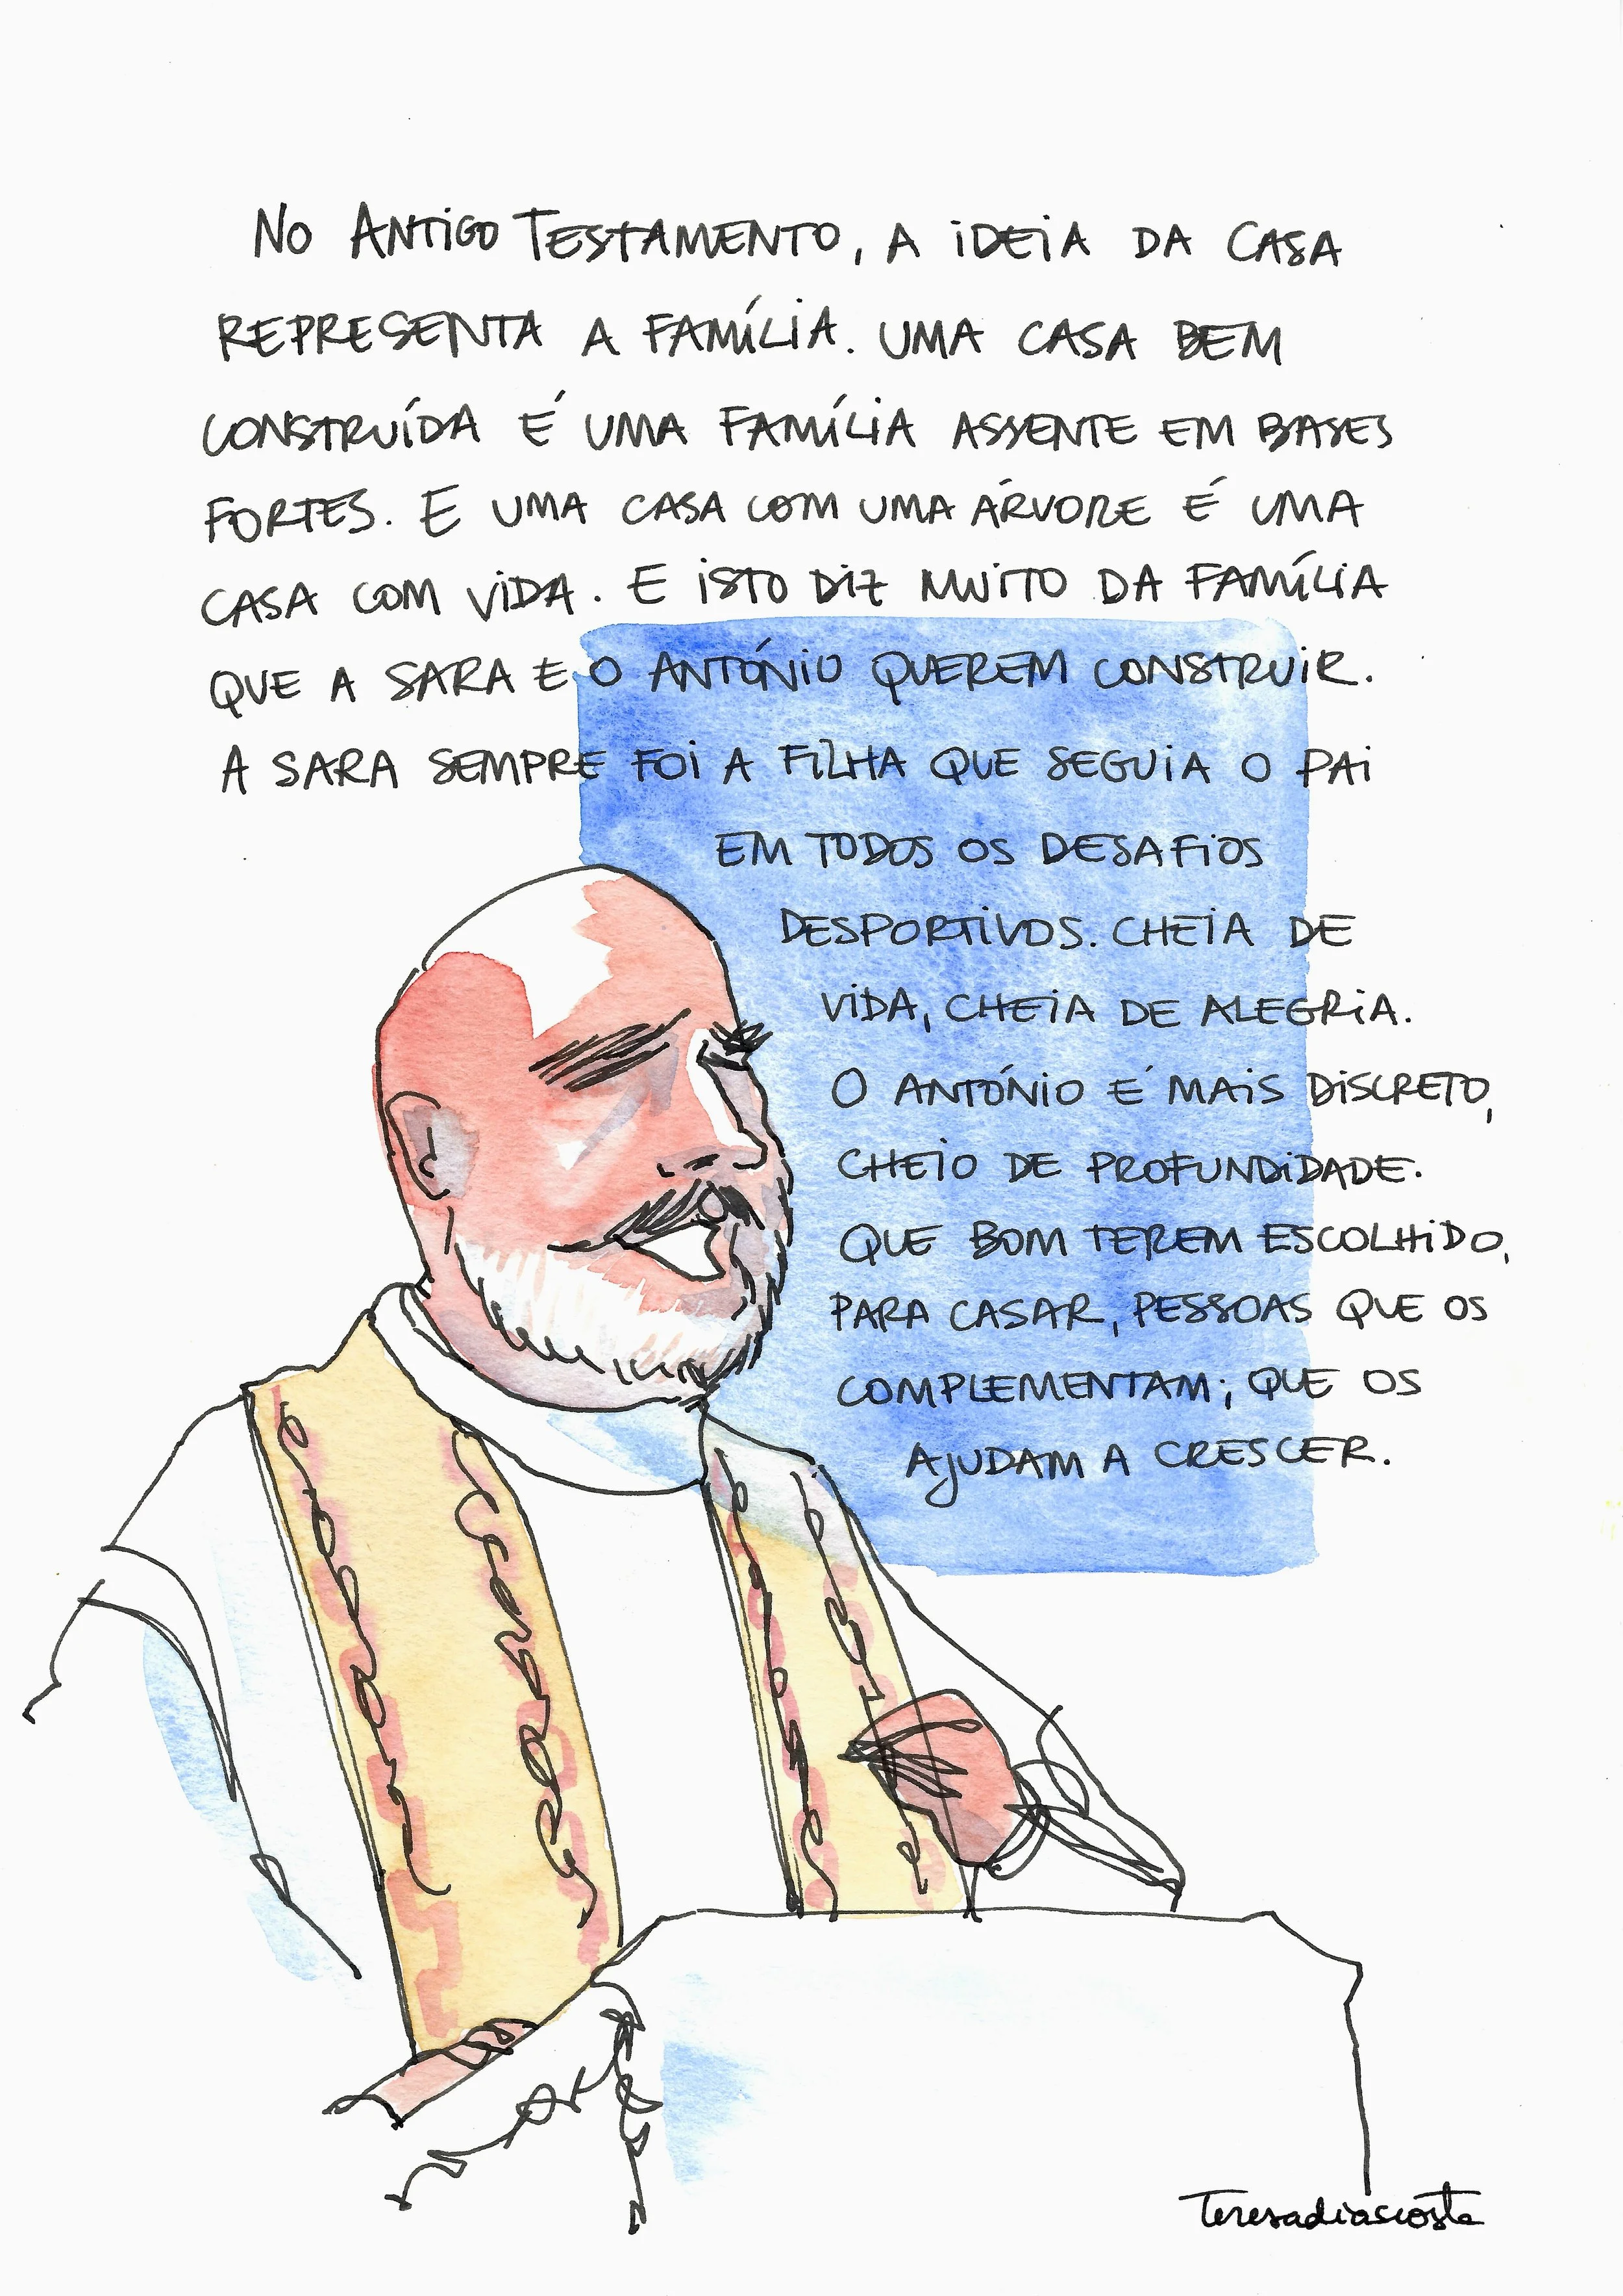 No Antigo Testamento, a ideia da casa
representa a família. Uma casa bem
construída é uma família assente em bases
fortes. E uma casa com uma árvore é uma
casa com vida. E isto diz muito da família
que a Sara e o António querem construir.
A Sara sempre foi a filha que seguia o pai
em todos os desafios
desportivos. Cheia de
vida, cheia de alegria.
O António é mais discreto,
cheio de profundidade.
Que bom terem escolhido,
para casar, pessoas que os
complementam; que os
ajudam a crescer.
Teresadiascosta